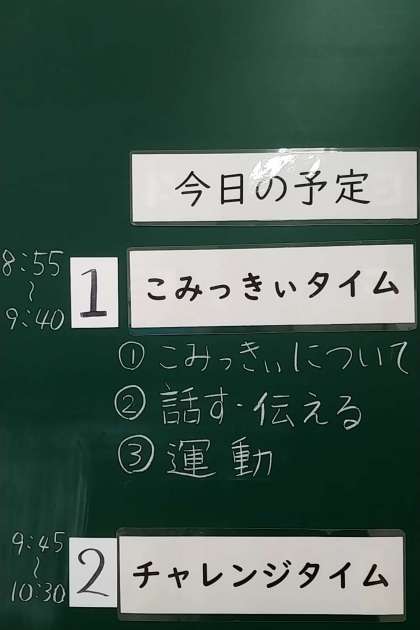 今日の予定
8:55
〜
9:40
1
こみっきぃタイム
① こみっきぃについて
② 話す・伝える
③ 運動
9:45
〜
10:30
2
チャレンジタイム